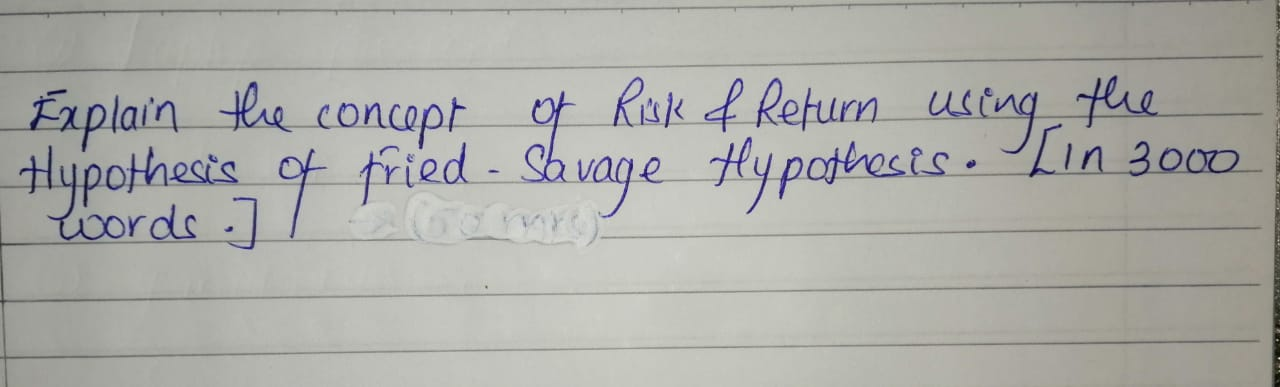 Explain the concept of Risk & Return using the
Hypothesis of fried - Savage Hypothesis. [in 3000
words.]